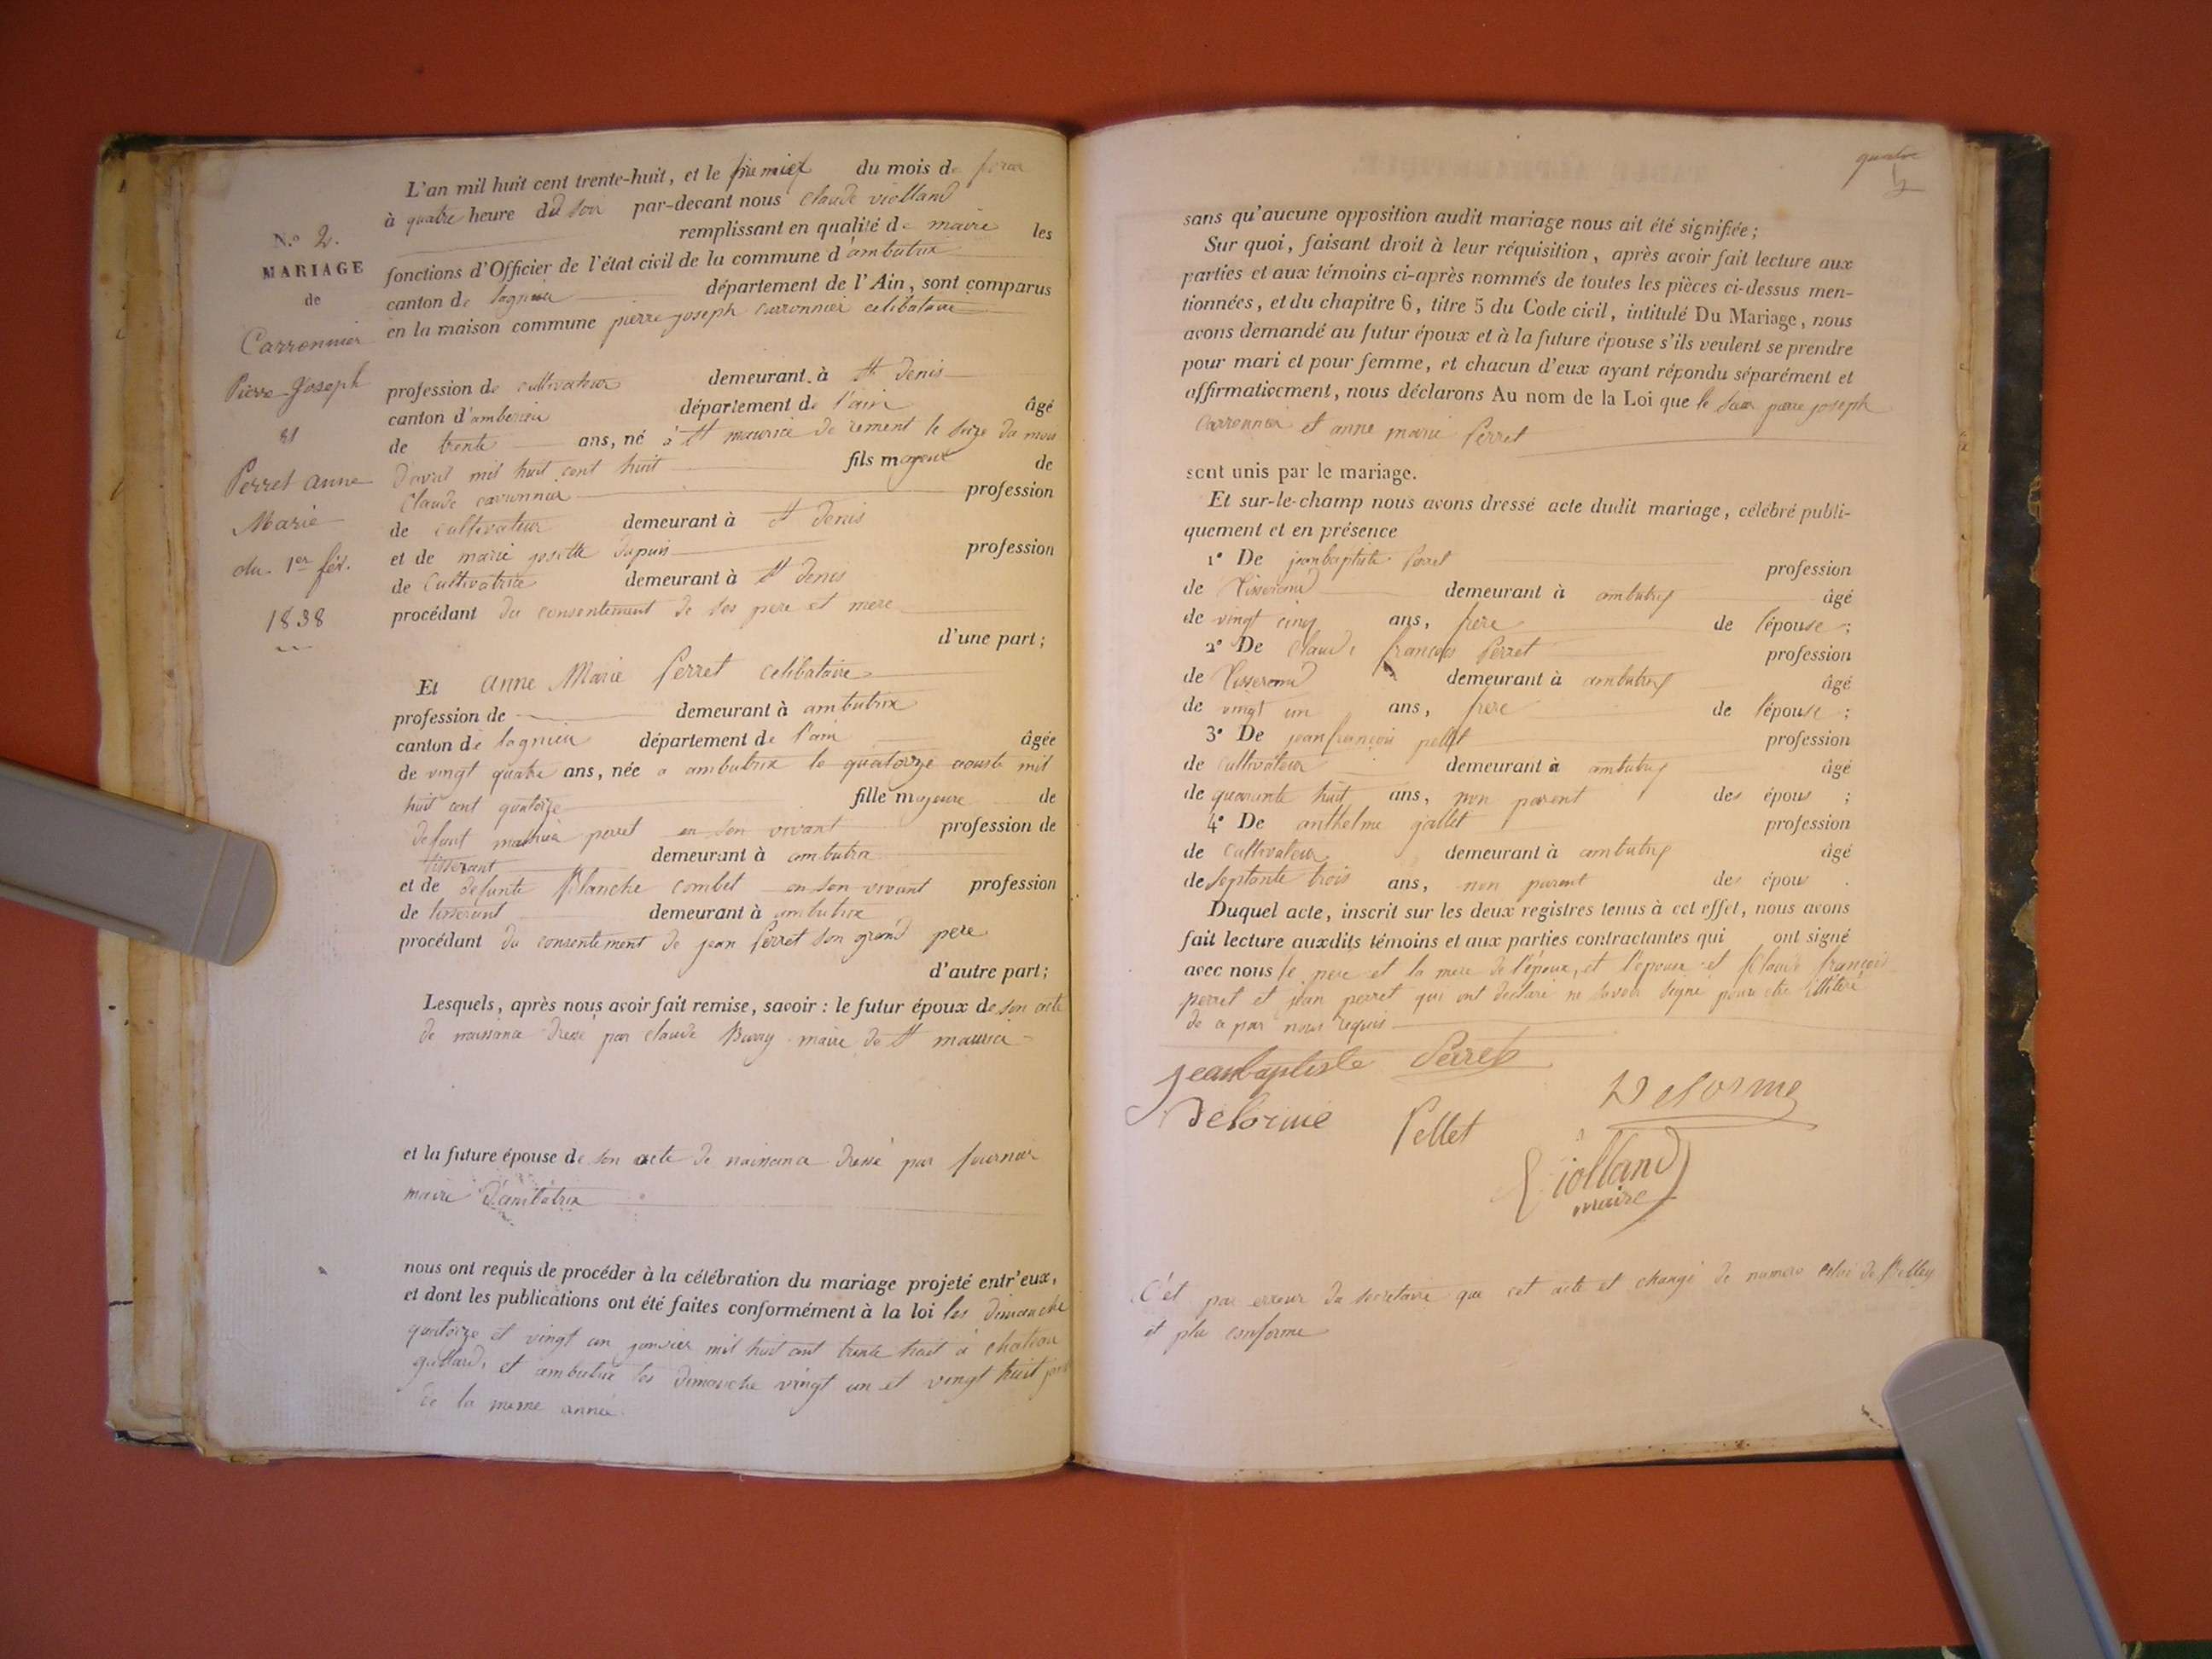 N.o 2.
MARIAGE
de
Carronnier
Pierre Joseph
et
Perret anne
Marie
du 1er fév.
1838
L'an mil huit cent trente-huit, et le premier du mois de
à quatre heure du soir par-devant nous Claude violland
remplissant en qualité de maire les
fonctions d'Officier de l'état civil de la commune d'ambutrix
canton de lagnieu département de l'Ain, sont comparus
en la maison commune pierre joseph carronnier celibataire
profession de cultivateur demeurant à st denis
canton d'amberieu département de l'ain âgé
de trente ans, né à st maurice de rement le seize du mois
d'avril mil huit cent huit fils majeur de
Claude carronnier profession
de cultivateur demeurant à st denis
et de marie josette dupuis profession
de Cultivatrice demeurant à st denis
procédant du consentement de ses pere et mere
d'une part;
Et anne Marie Perret celibataire
profession de demeurant à ambutrix
canton de lagnieu département de l'ain âgée
de vingt quatre ans, née a ambutrix le quatorze aouste mil
huit cent quatorze fille majeure de
defunt perret en son vivant profession de
tisserant demeurant à ambutrix
et de defunte Blanche combet en son vivant profession
de tisserant demeurant à ambutrix
procédant du consentement de jean Perret son grand pere
d'autre part;
Lesquels, après nous avoir fait remise, savoir : le futur époux de son acte
de naissance dressé par claude maire de st maurice
et la future épouse de son acte de naissance dressé par fournier
maire d'ambutrix
nous ont requis de procéder à la célébration du mariage projeté entr'eux,
et dont les publications ont été faites conformément à la loi les dimanche
quatorze et vingt un janvier mil huit cent trente huit à chateau
gaillard, et ambutrix les dimanche vingt un et vingt huit
de la meme année
quatre
sans qu'aucune opposition audit mariage nous ait été signifiée;
Sur quoi, faisant droit à leur réquisition, après avoir fait lecture aux
parties et aux témoins ci-après nommés de toutes les pièces ci-dessus men-
tionnées, et du chapitre 6, titre 5 du Code civil, intitulé Du Mariage, nous
avons demandé au futur époux et à la future épouse s'ils veulent se prendre
pour mari et pour femme, et chacun d'eux ayant répondu séparément et
affirmativement, nous déclarons Au nom de la Loi que le pierre joseph
Carronnier et anne marie Perret
sont unis par le mariage.
Et sur-le-champ nous avons dressé acte dudit mariage, célébré publi-
quement et en présence
1° De jeanbaptiste Perret profession
de Tisserand demeurant à ambutrix âgé
de vingt cinq ans, frere de l'épouse ;
2° De Claude françois Perret profession
de Tisserand demeurant à ambutrix âgé
de vingt un ans, frere de l'épouse ;
3° De jeanfrançois pellet profession
de cultivateur demeurant à ambutrix âgé
de quarante huit ans, non parent des époux ;
4° De anthelme gallet profession
de Cultivateur demeurant à ambutrix âgé
de septante trois ans, non parent des époux .
Duquel acte, inscrit sur les deux registres tenus à cet effet, nous avons
fait lecture auxdits témoins et aux parties contractantes qui ont signé
avec nous le pere et la mere de l'époux, et l'épouse et Claude françois
perret et jean perret qui ont declaré ne savoir signe pour etre illitéré
de ce par nous requis
jeanbaptiste Perret
Delorme Pellet Delorme
Violland
maire
C'et par erreur du secretaire que cet acte et changé de numero celui de
et plu conforme